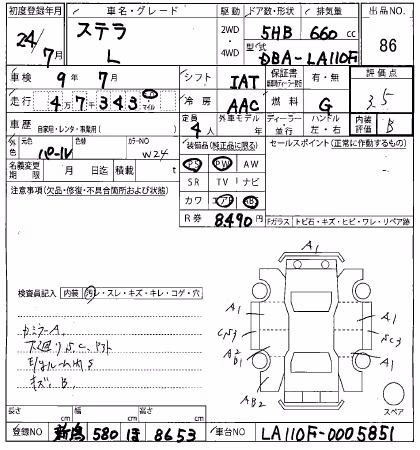 初度登録年月 車名・グレード 駆動 ドア数・形状 排気量 出品NO.
24/7月 ステラ L 2WD 4WD 5HB 660 cc 86
型式 DBA-LA110F
車検 9年 7月 シフト IAT 保証書 有・無 評価点
走行 4万7千343 マイル 冷房 AAC 燃料 G 3.5
車歴 自家用・レンタ・事業用( ) 定員 4人 外車モデル 年 ディーラー 並行 ハンドル 左・右 内装評価 B
外色 元色 パール 色替 カラーNO W24 装備品(純正品に限る) セールスポイント(正常に作動するもの)
名義変更期限 月 日迄 積載 t PS PW AW
注意事項(欠品・修復・不具合箇所および状態) SR TV ナビ
カワ エアB AB
R券 8490円 Fガラス トビ石・キズ・ヒビ・ワレ・リペア跡
A1
検査員記入 内装 汚レ・スレ・キズ・キレ・コゲ・穴
A1 A1
カミラーA
下廻りS,C,
キズ、B
A1
AB2
スペア
長さ cm 幅 cm 高さ cm
登録NO 新潟 580 ほ 8653 車台NO LA110F-0005851